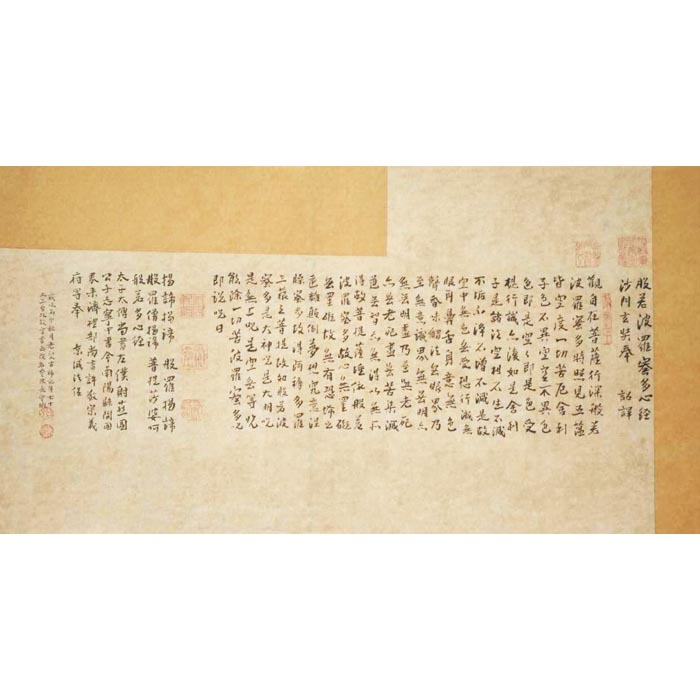 般若波羅蜜多心經
沙門玄奘奉 詔譯
觀自在菩薩行深般若
波羅蜜多時照見五蘊
皆空度一切苦厄舍利
子色不異空空不異色
色即是空々即是色受
想行識亦復如是舍利
子是諸法空相不生不滅
不垢不淨不增不減是故
空中無色無受想行識無
眼耳鼻舌身意無色
聲香味觸法無眼界乃
至無意識界無無明亦
無無明盡乃至無老死
亦無老死盡無苦集滅
道無智亦無得以無所
得故菩提薩埵依般若
波羅蜜多故心無罣礙
無罣礙故無有恐怖
遠離顛倒夢想究竟涅
蜜多故得阿耨多羅
三藐三菩提故知般若波
羅蜜多是大神咒是大明咒
是無上咒是無等等咒
能除一切苦 波羅蜜多咒
即說咒曰
揭諦揭諦 般羅揭諦
般羅僧揭諦 菩提莎婆呵
般若多心經
太子太傅尚書左僕射燕國
公于志寧 中書令南陽縣開國
男來濟 禮部尚書許敬宗